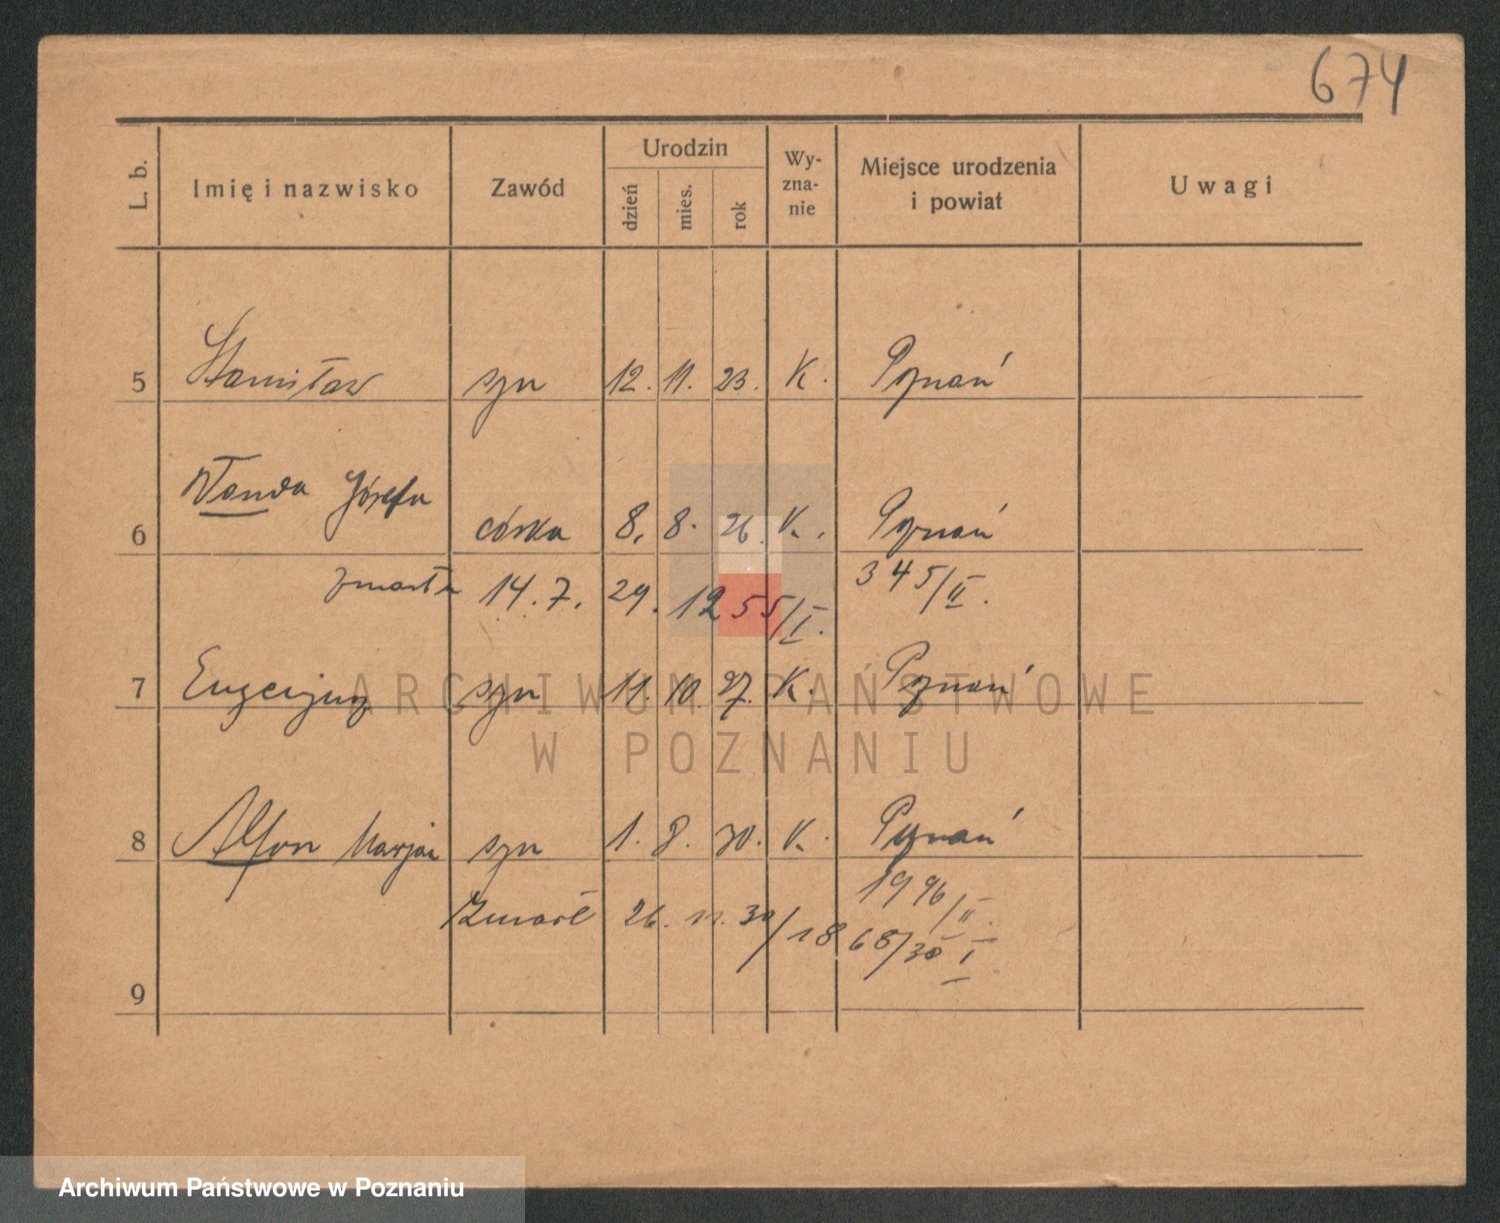 674
L. b. Imię i nazwisko Zawód Urodzin dzień mies. rok Wy-zna-nie Miejsce urodzenia i powiat Uwagi
5 Stanisław syn 12. 11. 23. K. Poznań
Wanda Józefa
6 córka 8. 8. 26. K. Poznań
zmarła 14. 7. 29. 1255/I. 345/II.
7 Eugenjusz syn 11. 10. 27. K. Poznań
8 Alfon Marjan syn 1. 8. 30. K. Poznań
1996/II.
zmarł 26. 11. 30/1868/30 I
9
ARCHIWUM PAŃSTWOWE
W POZNANIU
Archiwum Państwowe w Poznaniu